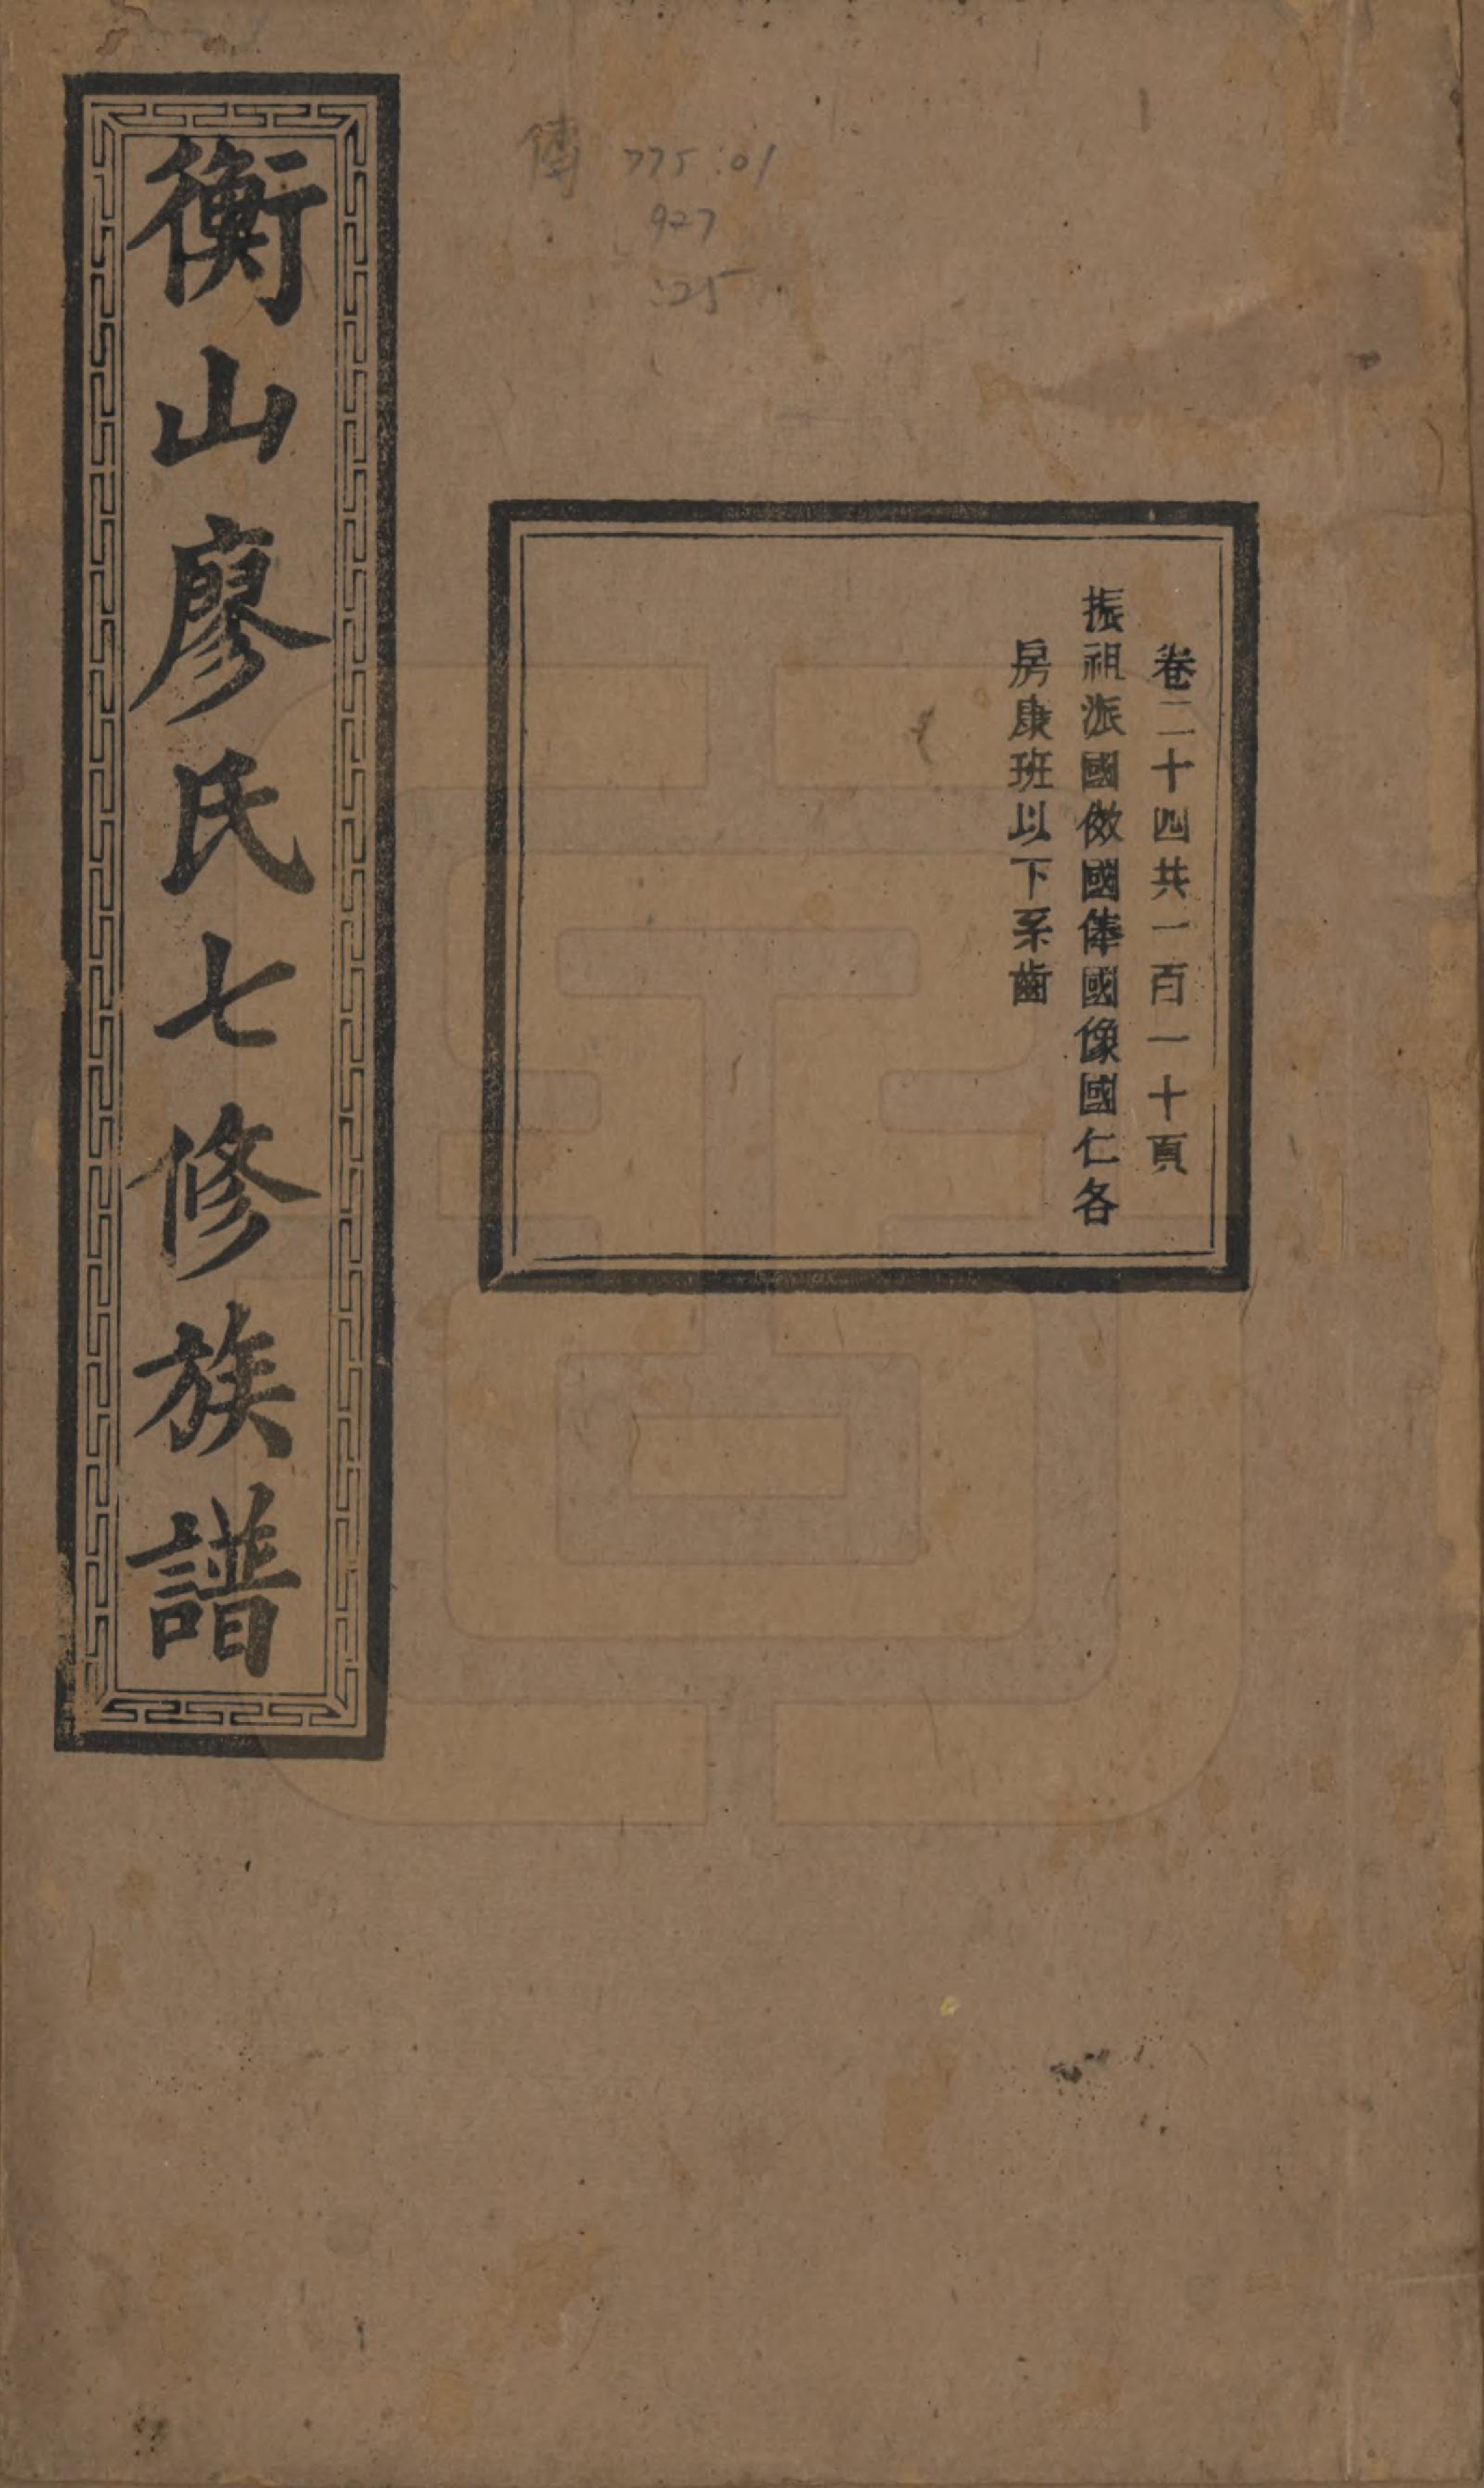 衡山廖氏七修族譜
傳 775.01
927
:25
卷二十四共一百一十頁
振祖派國傚國俸國像國仁各
房康班以下系齒